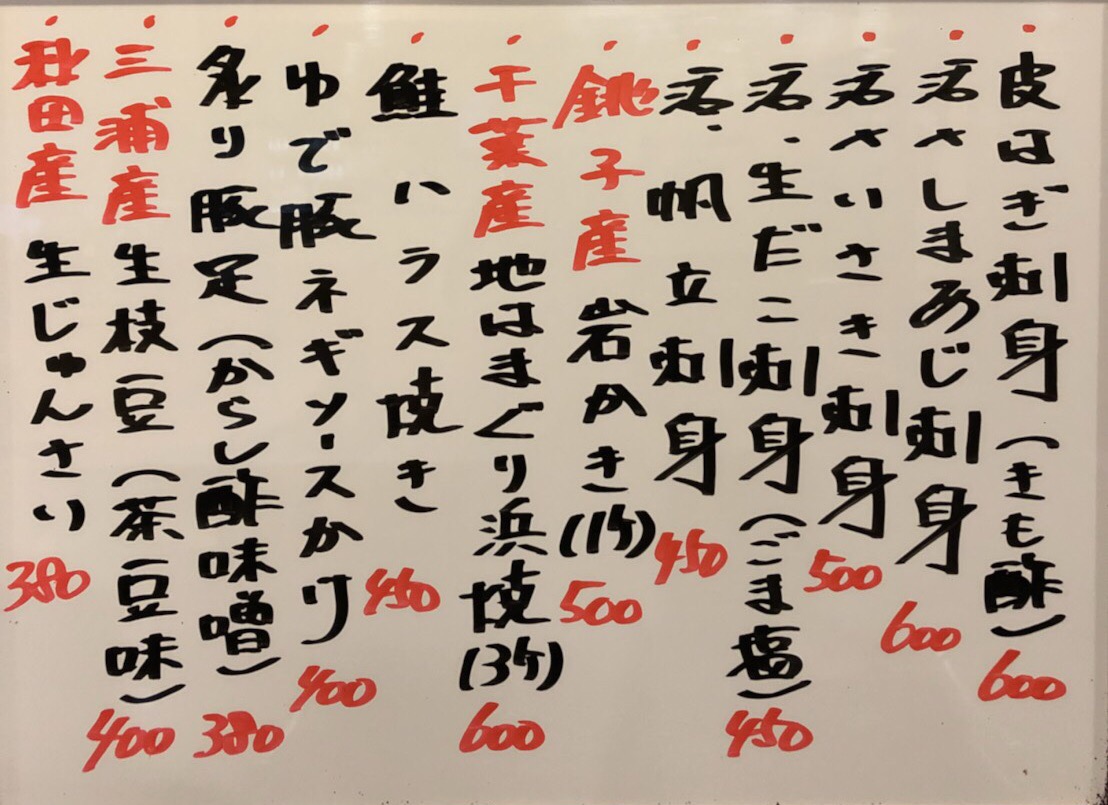 皮はぎ刺身(きも酢) 600
活〆しまあじ刺身 600
活〆いさき刺身 500
活・生だこ刺身(ごま塩) 450
活・帆立刺身 450
銚子産 岩かき(1ケ) 500
千葉産 地はまぐり浜焼(3ケ) 600
鮭ハラス焼き 450
ゆで豚ネギソースかけ 400
炙り豚足(からし酢味噌) 380
三浦産 生枝豆(茶豆味) 400
秋田産 生じゅんさい 380